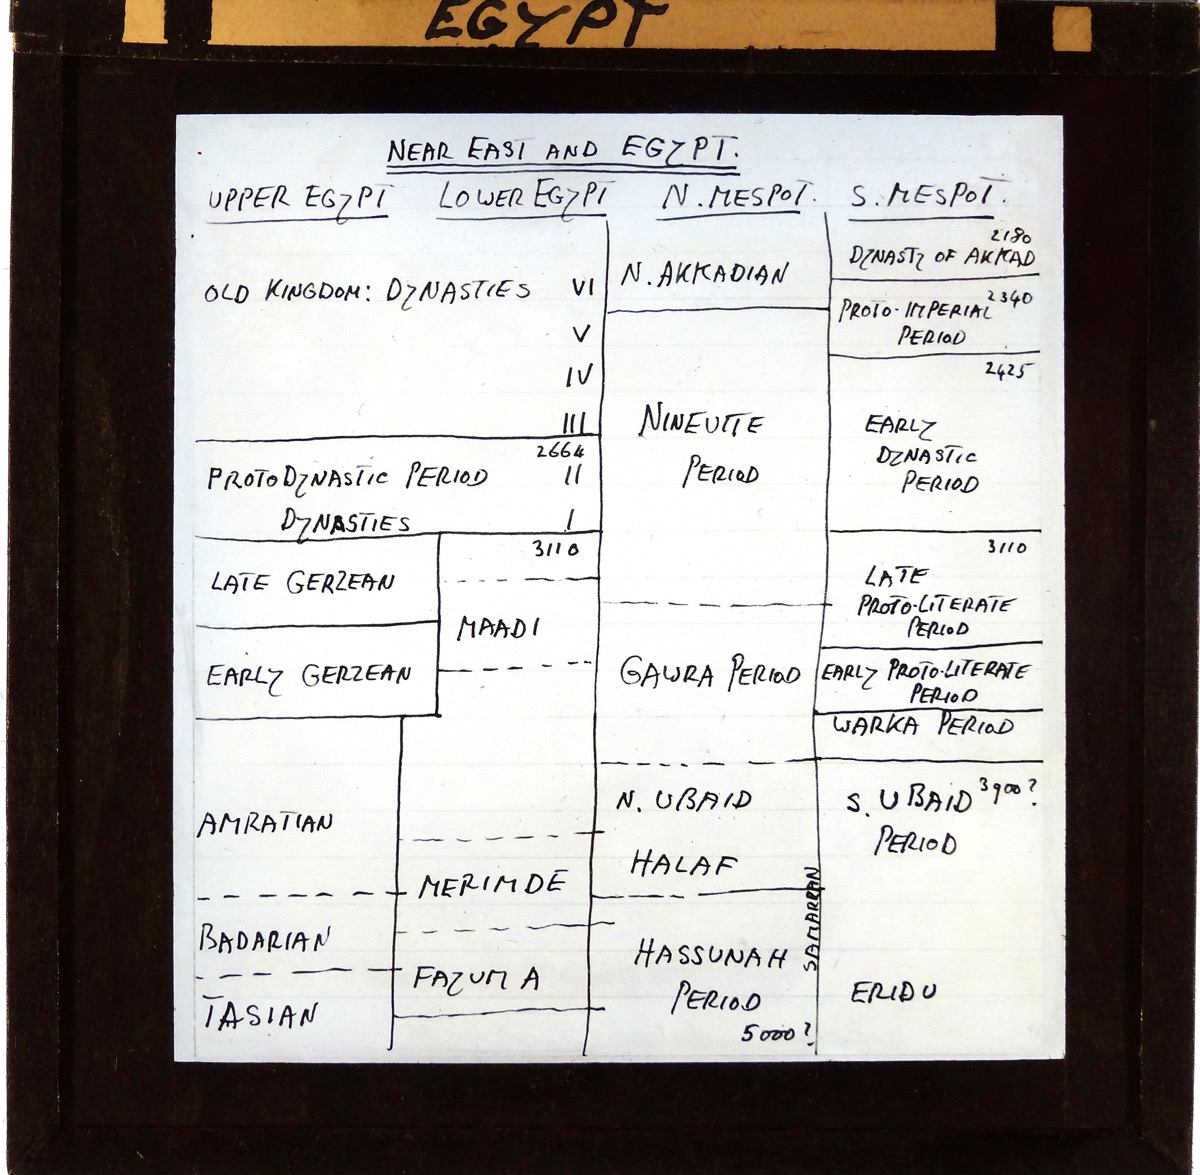 EGYPT
NEAR EAST AND EGYPT.
UPPER EGYPT LOWER EGYPT N. MESPOT. S. MESPOT.
OLD KINGDOM: DYNASTIES VI
V
IV
III
2664
PROTODYNASTIC PERIOD II
DYNASTIES I
3110
LATE GERZEAN
EARLY GERZEAN
MAADI
AMRATIAN
BADARIAN
TASIAN
MERIMDE
FAYUM A
N. AKKADIAN
NINEVITE
PERIOD
GAWRA PERIOD
N. UBAID
HALAF
HASSUNAH
PERIOD
5000?
SAMARRAN
2180
DYNASTY OF AKKAD
PROTO-IMPERIAL 2340
PERIOD
2425
EARLY
DYNASTIC
PERIOD
3110
LATE
PROTO-LITERATE
PERIOD
EARLY PROTO-LITERATE
PERIOD
WARKA PERIOD
S. UBAID 3900?
PERIOD
ERIDU